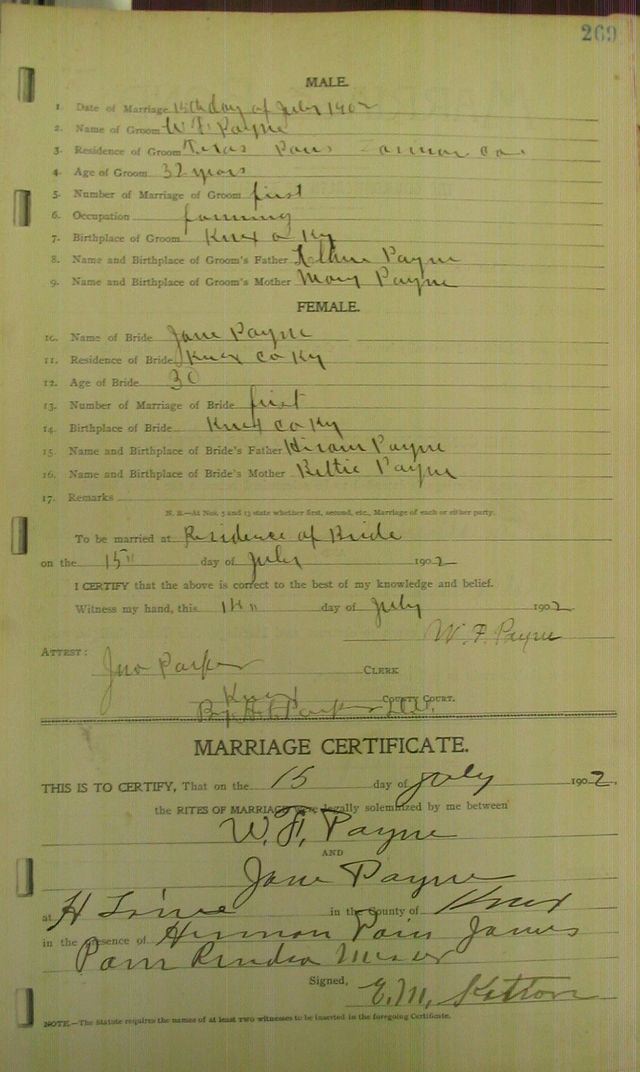 269
MALE.
1. Date of Marriage 15th day of July 1902
2. Name of Groom W F Payne
3. Residence of Groom Texas
4. Age of Groom 32 years
5. Number of Marriage of Groom first
6. Occupation farming
7. Birthplace of Groom Knox Co Ky
8. Name and Birthplace of Groom's Father Payne
9. Name and Birthplace of Groom's Mother Mary Payne
FEMALE.
10. Name of Bride Jane Payne
11. Residence of Bride Knox Co Ky
12. Age of Bride 30
13. Number of Marriage of Bride first
14. Birthplace of Bride Knox Co Ky
15. Name and Birthplace of Bride's Father Hiram Payne
16. Name and Birthplace of Bride's Mother Bettie Payne
17. Remarks
N. B.—At Nos. 5 and 13 state whether first, second, etc., Marriage of each or either party.
To be married at Residence of Bride
on the 15" day of July 1902
I CERTIFY that the above is correct to the best of my knowledge and belief.
Witness my hand, this 14" day of July 1902
W. F. Payne
ATTEST: Jno Parker CLERK
Knox COUNTY COURT.
By Parker D.C.
MARRIAGE CERTIFICATE.
THIS IS TO CERTIFY, That on the 15 day of July 1902.
the RITES OF MARRIAGE were legally solemnized by me between
W. F. Payne
AND
Jane Payne
at H in the County of Knox
in the presence of James
Signed, E. M.
NOTE.—The Statute requires the names of at least TWO witnesses to be inserted in the foregoing Certificate.